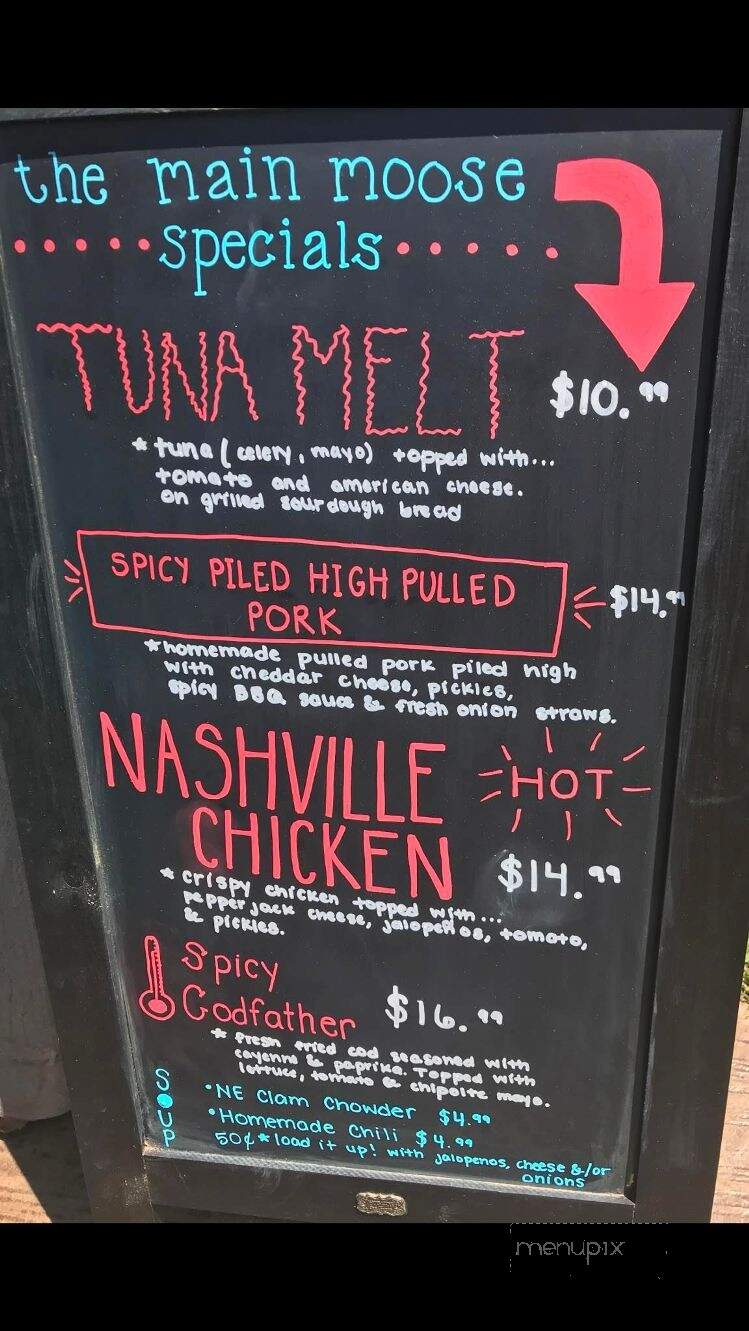 the main moose
specials
TUNA MELT $10.99
* tuna (celery, mayo) topped with...
tomato and american cheese.
on grilled sourdough bread
SPICY PILED HIGH PULLED
PORK
$14.99
*homemade pulled pork piled high
with cheddar cheese, pickles,
spicy BBQ sauce & fresh onion straws.
NASHVILLE HOT
CHICKEN $14.99
* crispy chicken topped with...
pepper jack cheese, jalopeños, tomato,
& pickles.
Spicy
Godfather $16.99
* fresh fried cod seasoned with
cayenne & paprika. Topped with
lettuce, tomato & chipolte mayo.
SOUP
•NE Clam Chowder $4.99
•Homemade Chili $4.99
50¢ * load it up! with jalopenos, cheese &/or
onions
menupix